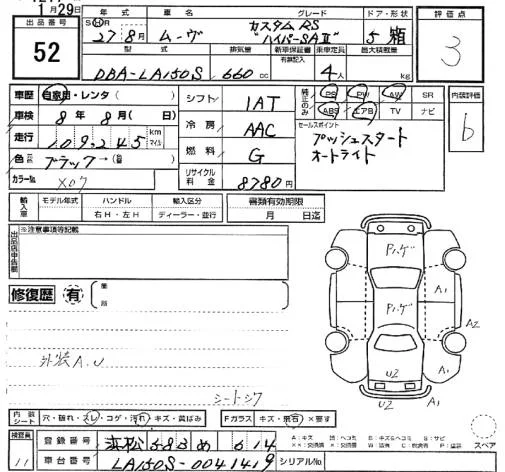 1月29日
出品番号 52
年式 S H 27年8月
車名 ムーヴ
グレード カスタムRS "ハイパーSAⅡ"
ドア・形状 5 箱
評価点 3
型式 DBA-LA150S
排気量 660 cc
新車保証書 有無記入
乗車定員 4人
最大積載量 kg
車歴 自家用・レンタ( )
車検 8年8月( 日)
走行 109,245 km マイル
色 ブラック→( )
カラーNo. X07
シフト 1AT
冷房 AAC
燃料 G
リサイクル料金 8780円
純正のみ PS PW AW SR
ABS エアB TV ナビ
セールスポイント
プッシュスタート
オートライト
内装評価 b
輸入車 モデル年式 ハンドル 右H・左H 輸入区分 ディーラー・並行
書類有効期限 月 日迄
出品店申告欄 ※注意事項等記載
修復歴 有 箇所
外装A.U
シートシワ
Pハゲ
Pハゲ
A1
A1
A2
U2
U2
内装シート 穴・破れ・スレ・コゲ・汚れ・キズ・黄ばみ
Fガラス キズ・飛石・×要す
検査員 11
登録番号 浜松 583 め 614
車台番号 LA150S-0041419
シリアルNo.
A:キズ U:ヘコミ B:キズ&ヘコミ S:サビ
スペア